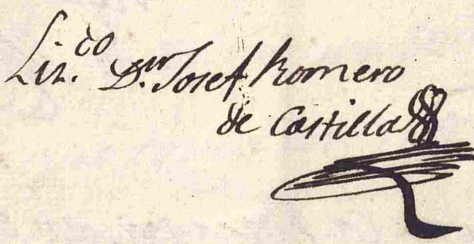 Liz.do Dn. Josef Romero
de Castilla